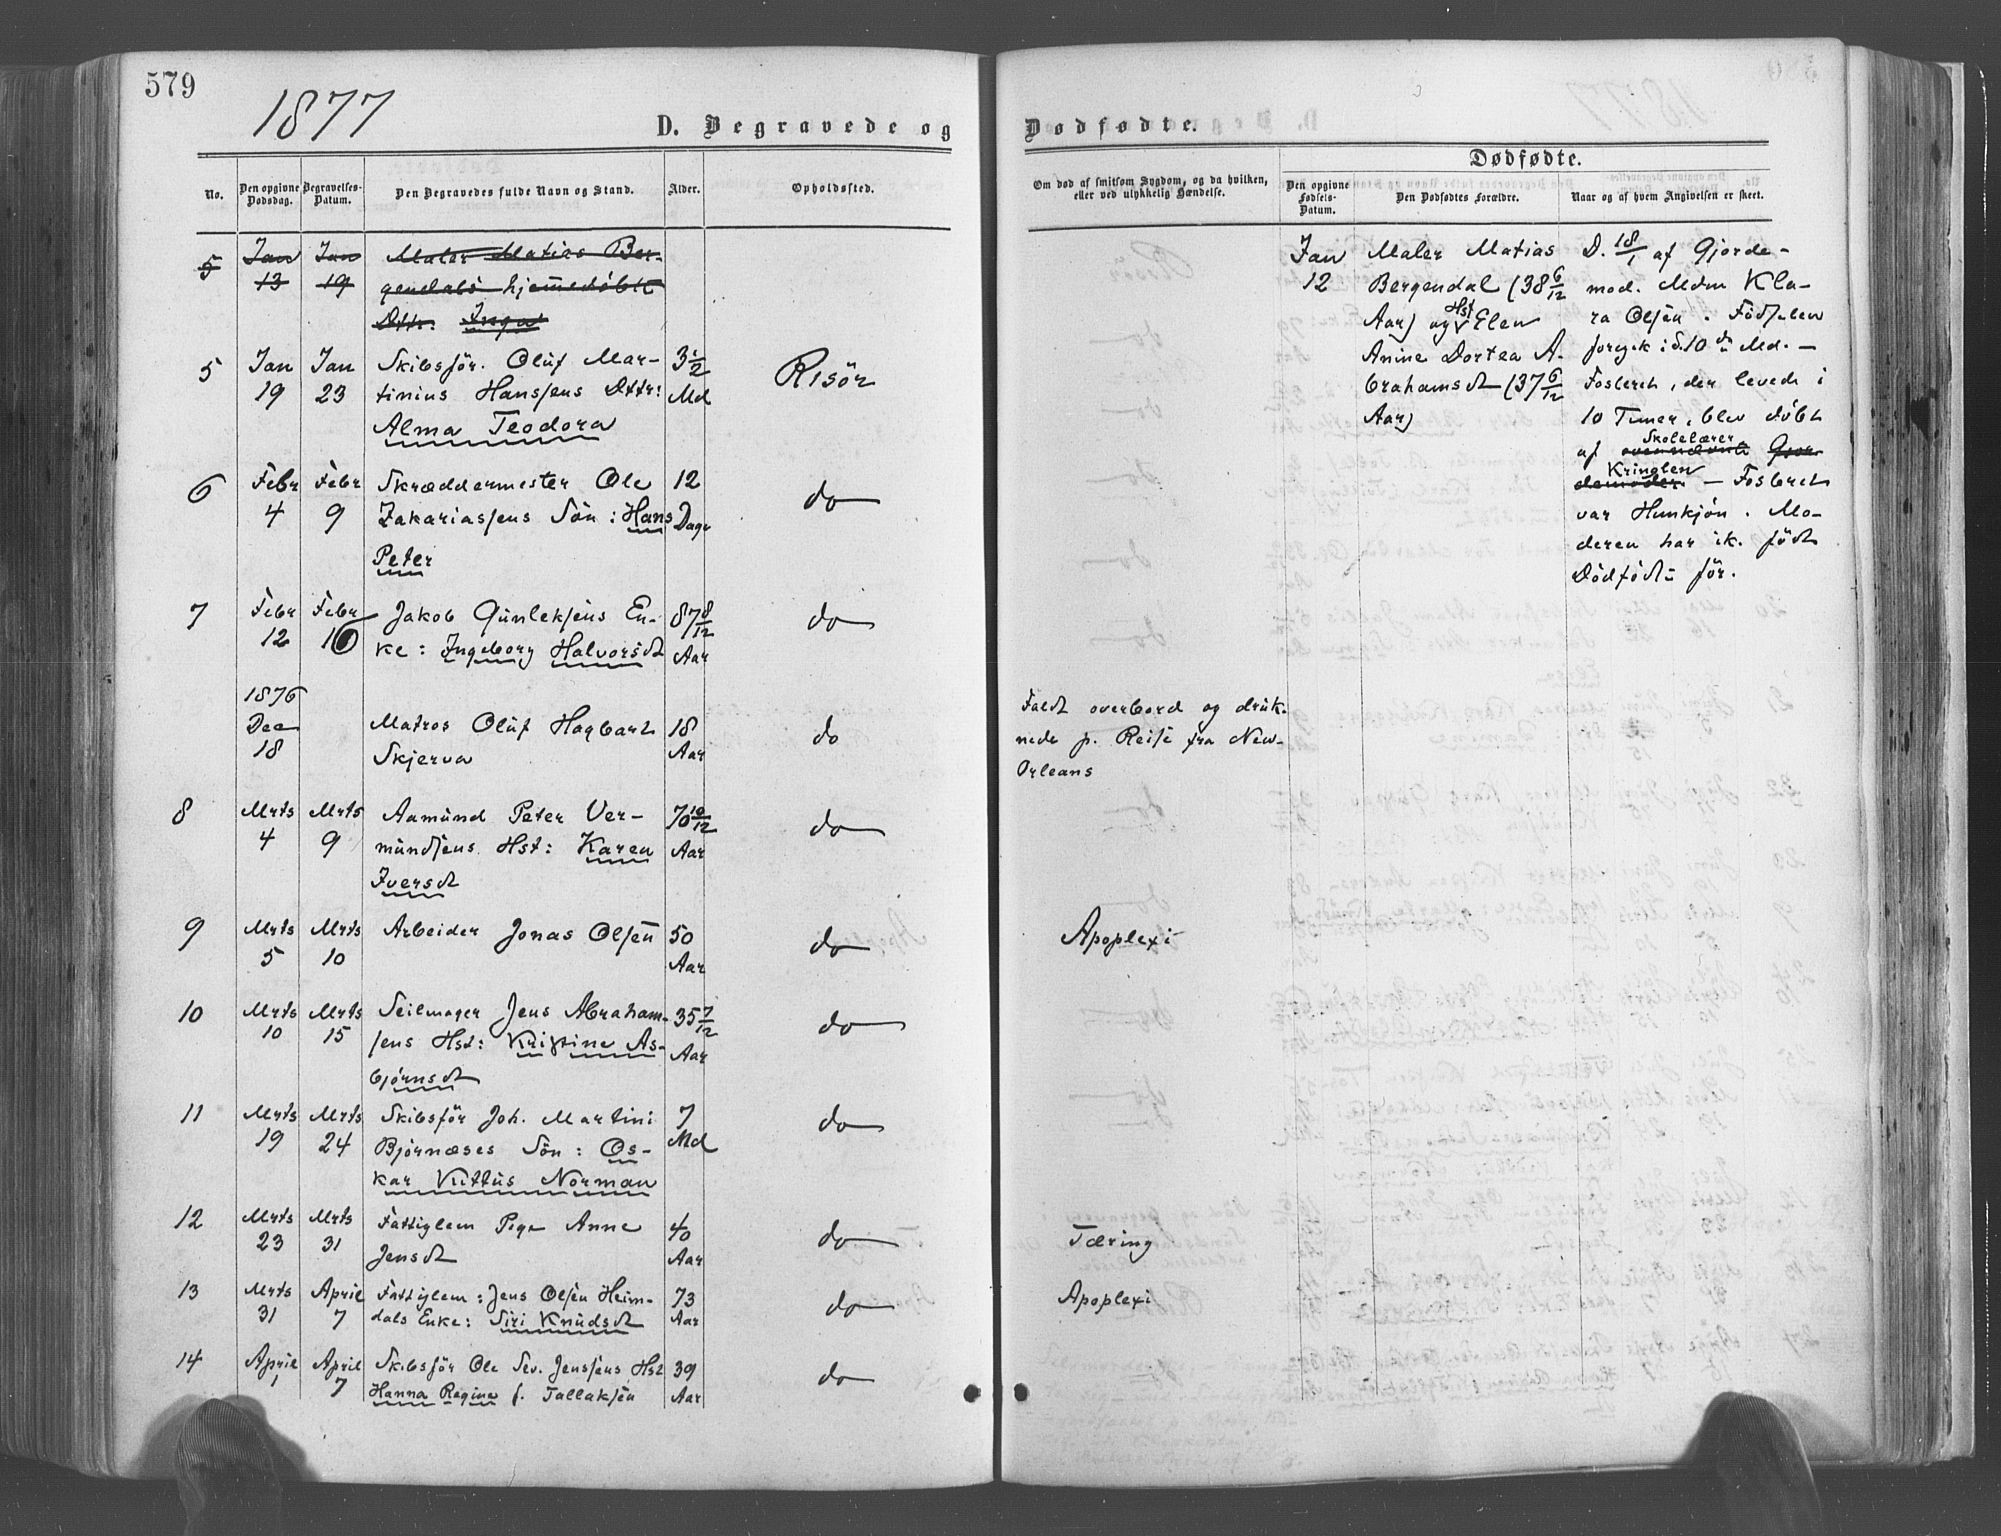 579
1877
D. Begravede og
Dødfødte.
No.
Den opgivne Dødsdag.
Begravelses-Datum.
Den Begravedes fulde Navn og Stand.
Alder.
Opholdssted.
Om død af smitsom Sygdom, og da hvilken, eller ved ulykkelig Hændelse.
Dødfødte.
Den opgivne Fødsels-Datum.
Den Dødfødtes Forældre.
Naar og af hvem Angivelsen er skeet.
5 Jan Jan Maler Matias Ber-
13 19 gendals hjemmedøbte
Dttr: Inga
5 Jan Jan Skibsfør. Oluf Mar- 3½ Risör
19 23 tinius Hanssens Dttr: Md
Alma Teodora
6 Febr Febr Skræddermester Ole 12 do
4 9 Zakariassens Sön: Hans Dage
Peter
7 Febr Febr Jakob Gunleksens En- 87 8/12 do
12 16 ke: Ingeborg Halvorsdt Aar
1876
Dec Matros Oluf Hagbart 18 do
18 Skjerva Aar
8 Mrts Mrts Aamund Peter Ver- 70 10/12 do
4 9 mundsens Hst: Karen Aar
Iversdt
9 Mrts Mrts Arbeider Jonas Olsen 50 do
5 10 Aar
10 Mrts Mrts Seilmager Jens Abraham- 35 7/12 do
10 15 sens Hst: Kristine As- Aar
bjørnsdt
11 Mrts Mrts Skibsför Joh. Martini 7 do
19 24 Bjørnæses Sön: Os- Md
kar Kittus Norman
12 Mrts Mrts Fattiglem Pige Anne 40 do
23 31 Jensdt Aar
13 Mrts April Fattiglem: Jens Olsen Heim- 73 do
31 7 dals Enke: Siri Knudsdt Aar
14 April April Skibsför Ole Sev. Jenssens Hst 39 do
1 7 Hanna Regine f. Tallaksen Aar
Faldt overbord og druk-
nede p. Reise fra New-
Orleans
Apoplexi
Tæring
Apoplexi
Jan
12
Maler Matias
Bergendal (38 6/12
Aar) og Hst Elen
Anine Dortea A-
brahamsdt (37 6/12
Aar)
D. 18/1 af Gjorde-
mod. Mdm Kla-
ra Olsen. Födselen
foregik i d. 10de Md. —
Fosteret, der levede i
10 Timer, blev døbt
Skolelærer
af ovennævnte Gjor-
Kringlen
demoder — Fosteret
var Hunkjøn. Mo-
deren har ik. født
Dödfödte för.